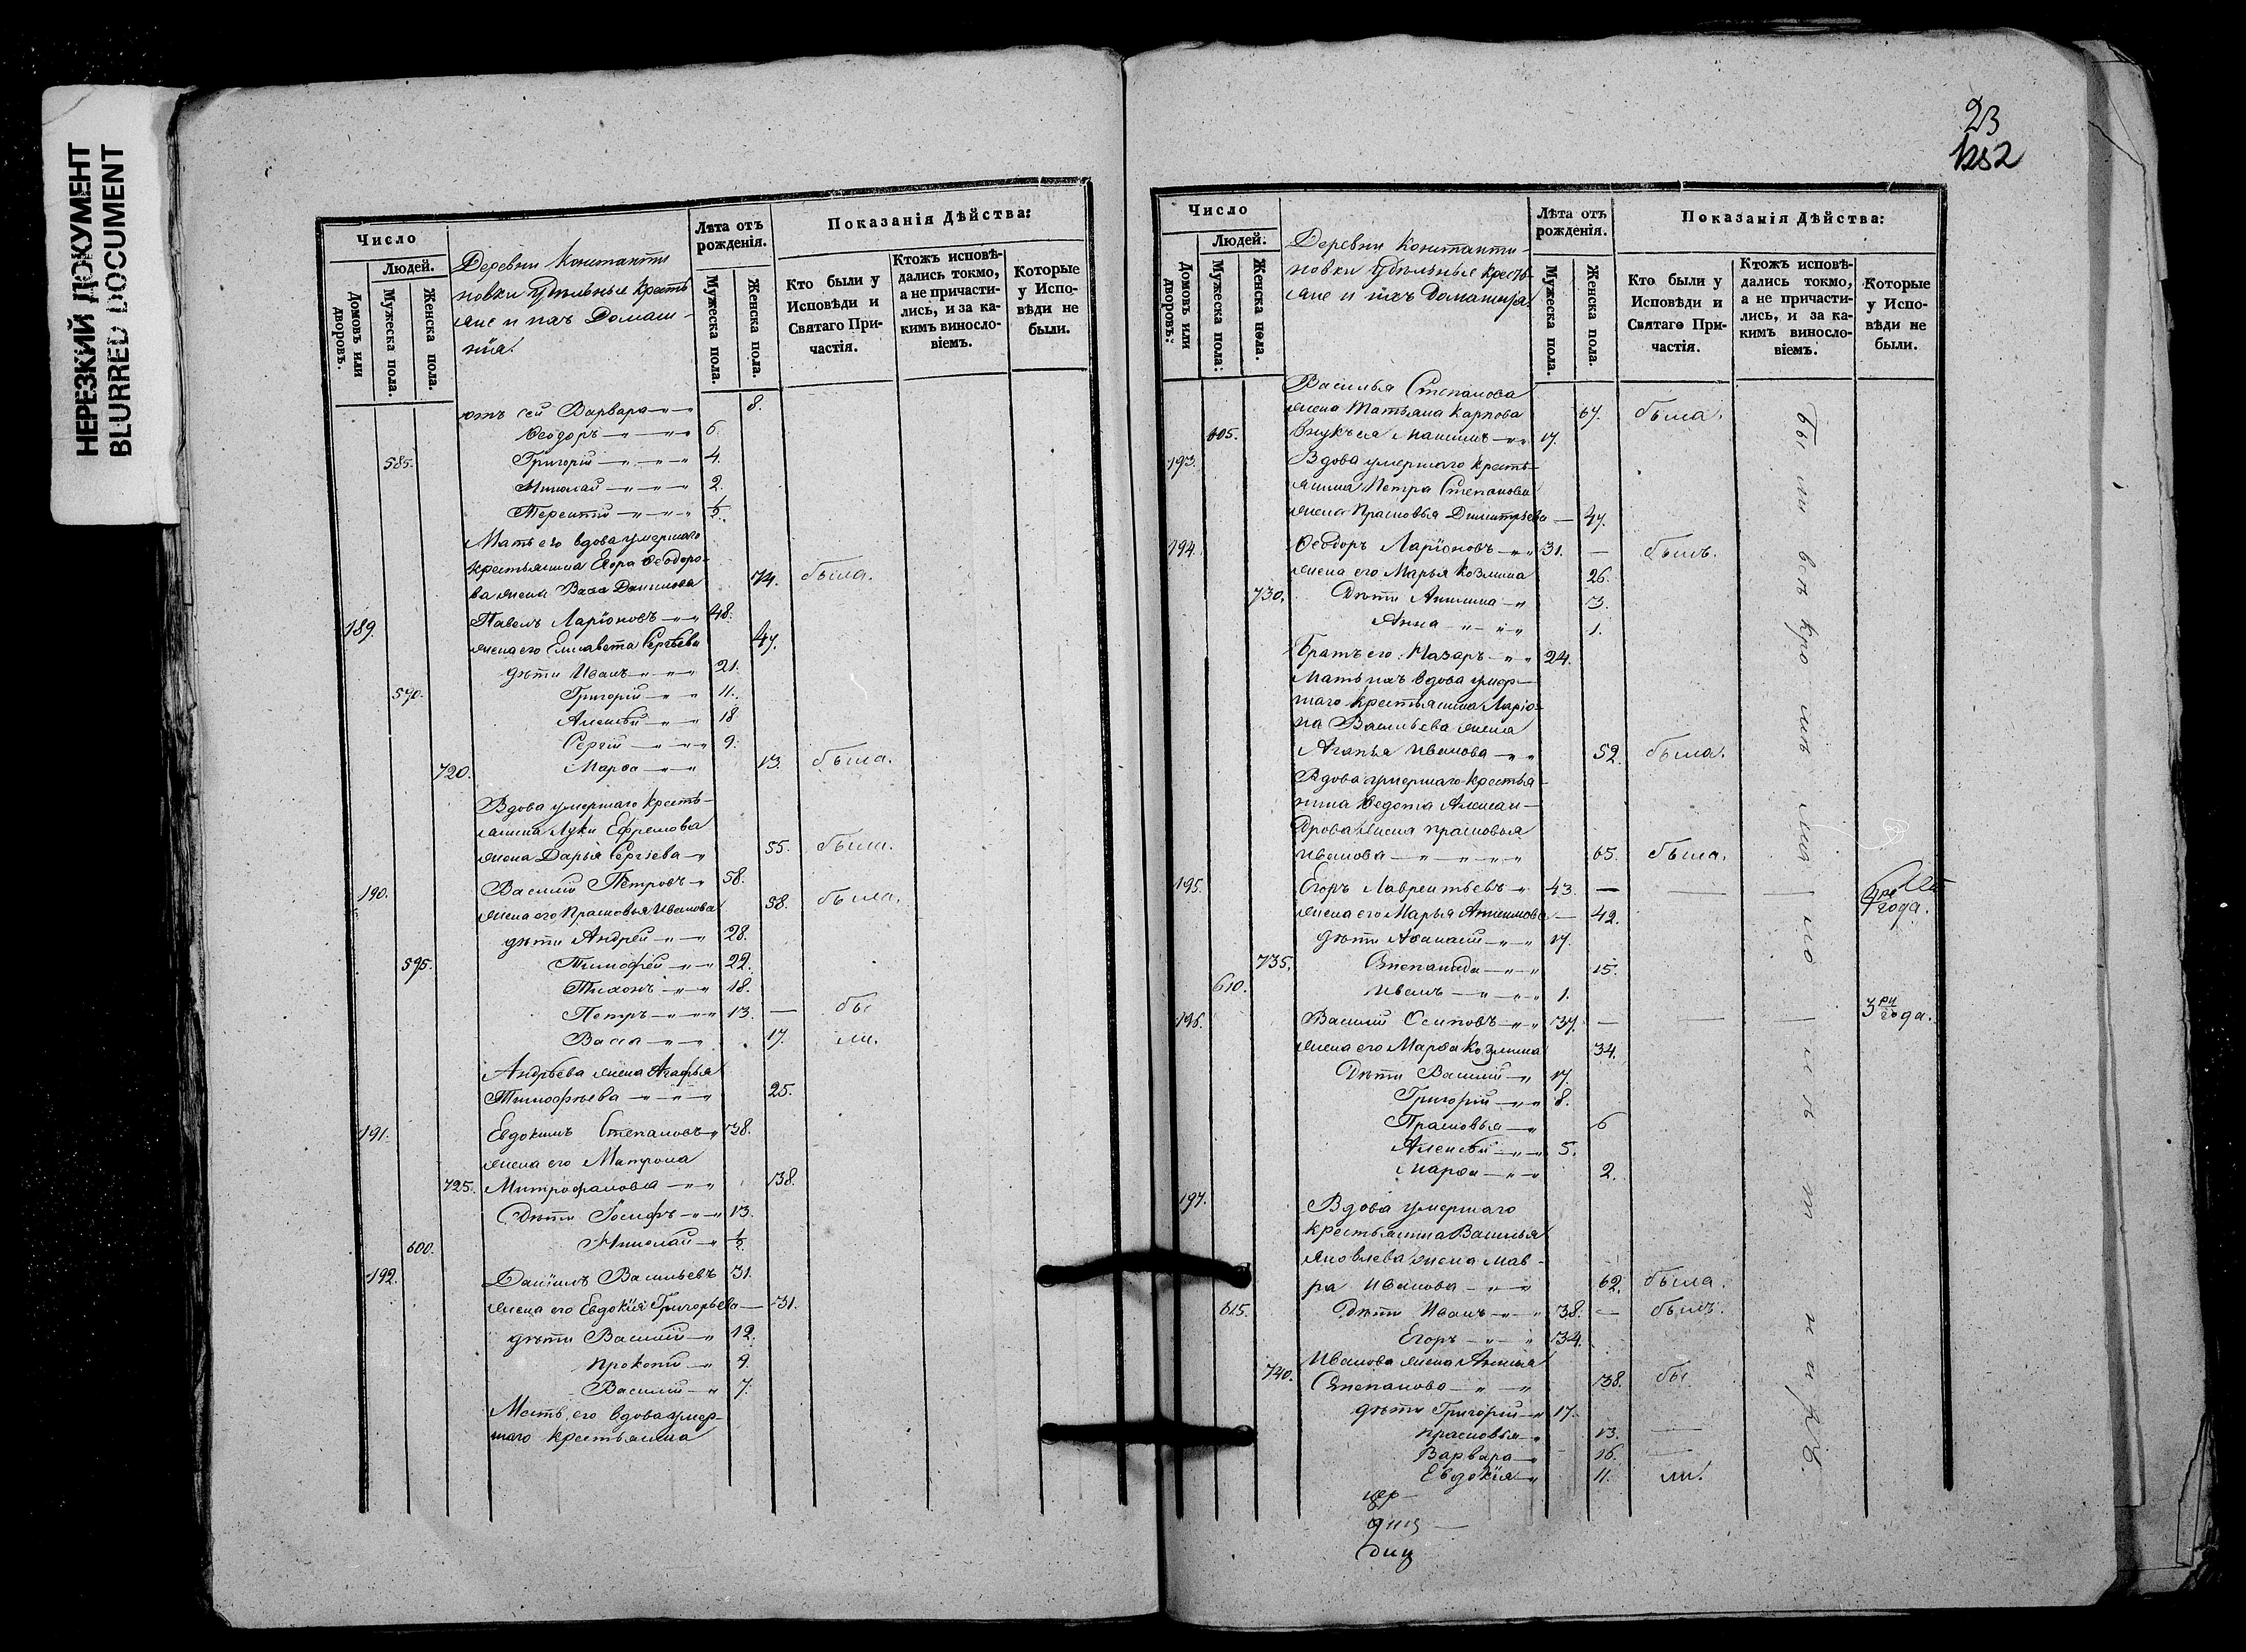 НЕРЕЗКИЙ ДОКУМЕНТ
BLURRED DOCUMENT
Число
Людей.
Домовъ или дворовъ.
Мужеска пола.
Женска пола.
Деревни Константи
новки Удѣльные кресть
яне и ихъ Домаш-
нія.
Лѣта отъ рожденія.
Мужеска пола.
Женска пола.
Показанія Дѣйства:
Кто были у Исповѣди и Святаго Причастія.
Ктожъ исповѣдались токмо, а не причастились, и за какимъ винословіемъ.
Которые у Исповѣди не были.
отъ сей Варвара 8.
Ѳеодоръ 6.
585. Григорій 4.
Николай 2.
Терентій ½.
Мать его вдова умершаго
крестьянина Егора Ѳеодоро-
ва жена Васса Данилова 74. была.
189. Павелъ Ларіоновъ 48.
жена его Елисавета Сергѣева 47.
дѣти Иванъ 21.
590. Григорій 11.
Алексѣй 18
Сергій 9.
720. Марѳа 13. была.
Вдова умершаго кресть-
янина Луки Ефремова
жена Дарья Сергіева 55. была.
190. Василій Петровъ 58.
жена его Прасковья Иванова 58. была.
дѣти Андрей 28.
595. Тимофей 22.
Тихонъ 18.
Петръ 13. — бы
Васса 17. ли.
Андрѣева жена Агафья
Тимофѣева 25.
191. Евдокимъ Степановъ 38.
жена его Матрона
725. Митрофанова 38.
Дѣти Іосифъ 13.
600. Николай ½
192. Даніилъ Васильевъ 31.
жена его Евдокія Григорьева — 31.
дѣти Василій 12.
Прокопій 9.
Василій 7.
Мать его вдова умер-
шаго крестьянина
23
Число
Людей.
Домовъ или дворовъ.
Мужеска пола.
Женска пола.
Деревни Константи-
новки Удѣльные кресть-
яне и ихъ Домашнія.
Лѣта отъ рожденія.
Мужеска пола.
Женска пола.
Показанія Дѣйства:
Кто были у Исповѣди и Святаго Причастія.
Ктожъ исповѣдались токмо, а не причастились, и за какимъ винословіемъ.
Которые у Исповѣди не были.
Василья Степанова
жена Татьяна Карпова 67. была.
605. Внукъ ея Максимъ 17.
193. Вдова умершаго кресть-
янина Петра Степанова
жена Прасковья Димитріева — 47.
194. Ѳеодоръ Ларіоновъ 31. — былъ.
жена его Марья Козмина 26.
730. Дѣти Акилина 3.
Анна 1.
Братъ его Назаръ 24.
Мать ихъ вдова умер-
шаго крестьянина Ларіо-
на Васильева жена
Агапья Иванова 52. была.
Вдова умершаго крестья-
нина Ѳедота Алексан-
дрова жена Прасковья
Иванова 65. была.
195. Егоръ Лаврентьевъ 43. — года.
жена его Марья Анисимова — 42.
дѣти Аѳанасій 17.
735. Степанида 15.
610. Иванъ 1.
196. Василій Осиповъ 37. — 3ри года.
жена его Марѳа Козмина 34.
Дѣти Василій 17.
Григорій 8.
Прасковья 6
Алексѣй 5.
Марѳа 2.
197. Вдова умершаго
крестьянина Василья
Яковлева жена Мав-
ра Иванова 62. была.
615. Дѣти Иванъ 38. — былъ.
Егоръ 34.
Иванова жена
740. Степанова 38. бы
дѣти Григорій 17.
Прасковья 13. —
Варвара 16. —
Евдокія 11. ли.